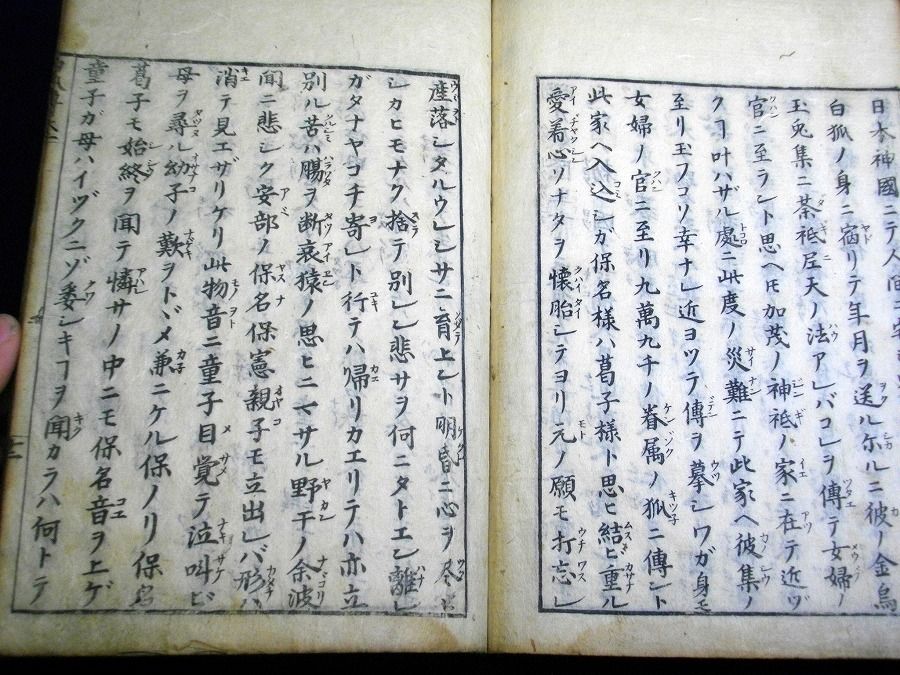 日本神國ニテ人間ニ
白狐ノ身ニ宿リテ年月ヲ送ル尓ルニ彼ノ金烏
玉兎集ニ荼祗尼天ノ法アレバコレヲ傳テ女婦ノ
官ニ至ラント思ヘ𪜈加茂ノ神祗ノ家ニ在テ近ヅ
クヿ叶ハザル處ニ此度ノ災難ニテ此家ヘ彼集ノ
至リ玉フコソ幸ナレ近ヨツテ傳ヲ摹シワガ身モ
女婦ノ官ニ至リ九萬九千ノ眷属ノ狐ニ傳ント
此家ヘ入込シガ保名様ハ葛子様ト思ヒ結ヒ重ル
愛着心ソナタヲ懐胎シテヨリ元ノ願モ打忘レ
産落シタルウレシサニ育上ント明昏ニ心ヲ尽
シカヒモナク捨テ別レシ悲サヲ何ニタトエン離レ
ガタナヤコチ寄レト行テハ帰リカエリテハ亦立
別ル苦ハ腸ヲ断哀猿ノ思ヒニマサル野干ノ余波
聞ニ悲シク安部ノ保名保憲親子モ立出レバ形ハ
消テ見エザリケリ此物音ニ童子目覚テ泣叫ビ
母ヲ尋ル幼子ノ歎ヲトヾメ兼ニケル保ノリ保名
葛子モ始終ヲ聞テ憐サノ中ニモ保名音ヲ上ゲ
童子ガ母ハイヅクニゾ委シキヿヲ聞カラハ何トテ